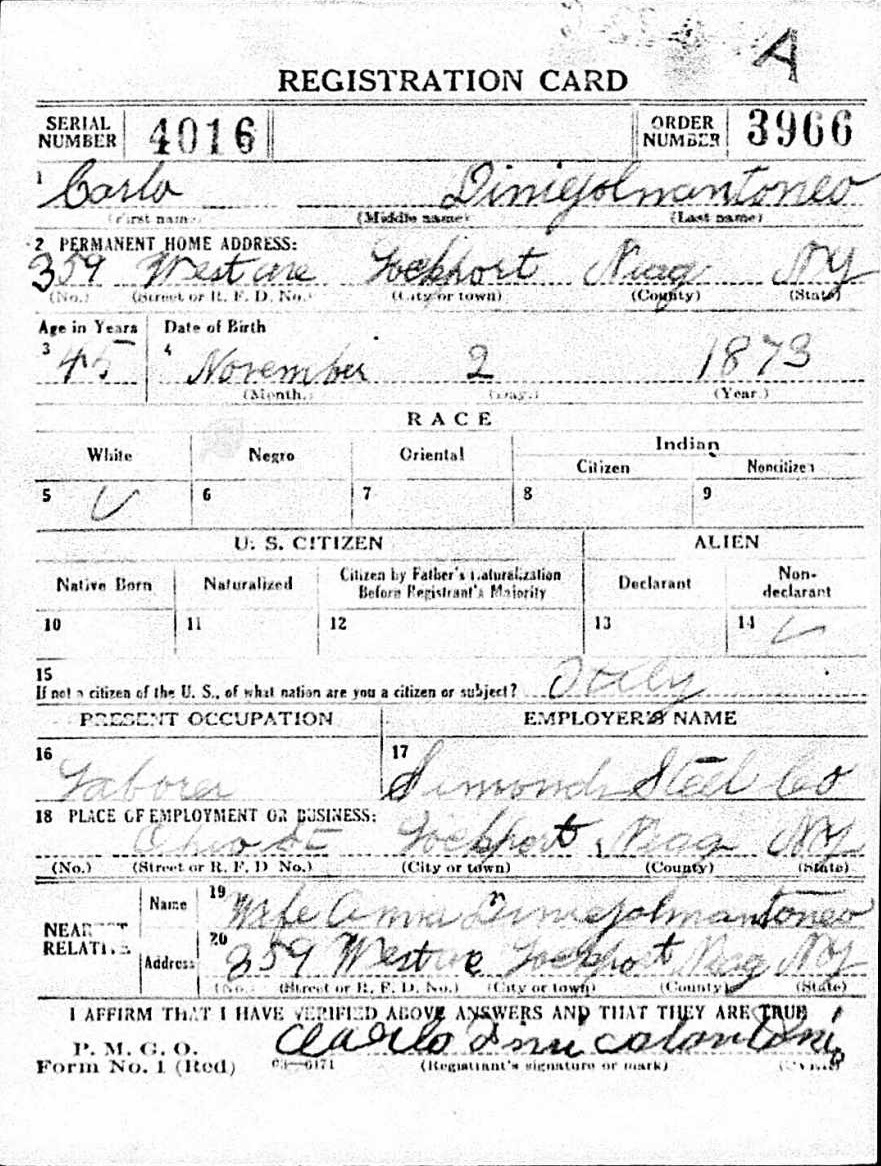 A
REGISTRATION CARD
SERIAL NUMBER 4016 ORDER NUMBER 3966
1 Carlo Diniejolmantoneo
(First name) (Middle name) (Last name)
2 PERMANENT HOME ADDRESS:
359 West ave Lockport Niag NY
(No.) (Street or R. F. D. No.) (City or town) (County) (State)
Age in Years Date of Birth
3 45 4 November 2 1873
(Month.) (Day.) (Year.)
RACE
White Negro Oriental Indian
Citizen Noncitizen
5 6 7 8 9
U. S. CITIZEN ALIEN
Native Born Naturalized Citizen by Father's Naturalization Before Registrant's Majority Declarant Non-declarant
10 11 12 13 14
15
If not a citizen of the U. S., of what nation are you a citizen or subject? Italy
PRESENT OCCUPATION EMPLOYER'S NAME
16 Laborer 17 Simonds Steel Co
18 PLACE OF EMPLOYMENT OR BUSINESS:
Ohio St Lockport, Niag NY
(No.) (Street or R. F. D. No.) (City or town) (County) (State)
NEAREST RELATIVE Name 19 Wife Anna Diniejolmantoneo
Address 20 359 West ave Lockport Niag NY
(No.) (Street or R. F. D. No.) (City or town) (County) (State)
I AFFIRM THAT I HAVE VERIFIED ABOVE ANSWERS AND THAT THEY ARE TRUE
P. M. G. O.
Form No. 1 (Red) 03—6171 Carlo Dinicolantoni
(Registrant's signature or mark) (OVER)